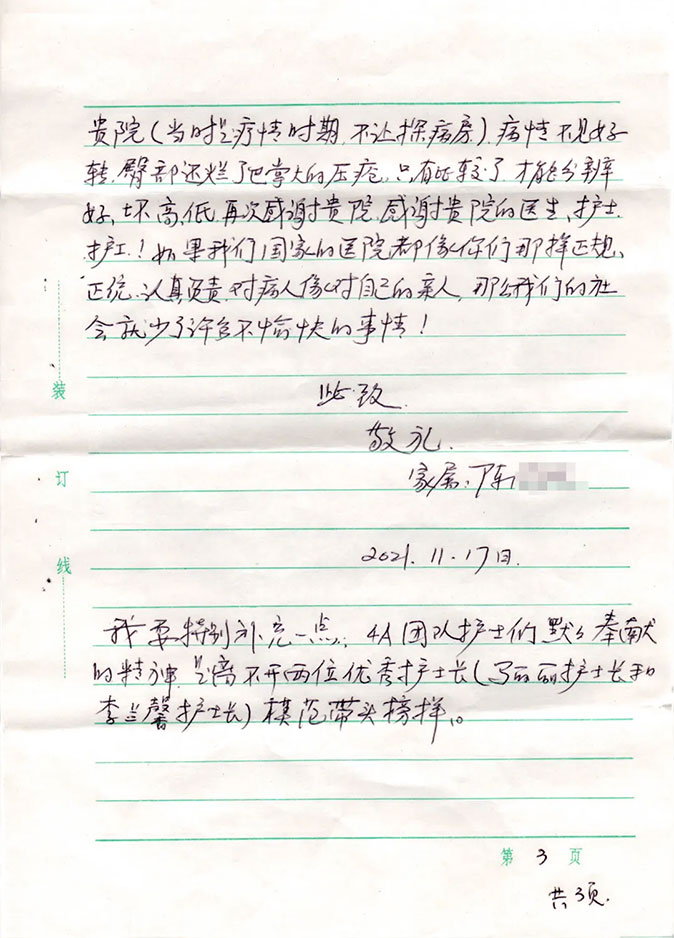 贵院(当时是疗情时期,不让探病房)。病情不见好
转,臀部还烂了巴掌大的压疮,只有比较了,才能分辨
好、坏、高、低。再次感谢贵院,感谢贵院的医生、护士、
护工!如果我们国家的医院都像你们那样正规、
正统、认真负责,对病人像对自己的亲人,那么我们的社
会就少了许多不愉快的事情!
此致
敬礼.
家属:陈
2021.11.17日.
我要特别补充一点:4A团队护士们默々奉献
的精神是离不开两位优秀护士长(马丽丽护士长和
李兰馨护士长)模范带头榜样。
装
订
线
第 3 页
共3页.